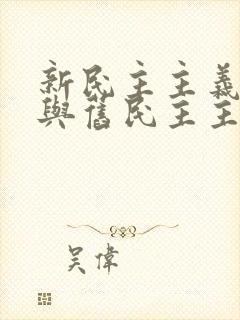 新民主主義
與舊民主主
吴偉